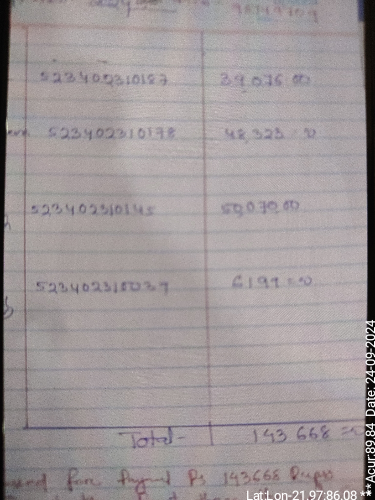 523402310187 39,076.00
523402310178 48,323=00
523402310145 50,070.00
523402310037 6199=00
Total- 143668=00
for Payment Rs 143668 Rupees
Lat:Lon-21.97:86.08 ** Acur:89.84 Date: 24-09-2024